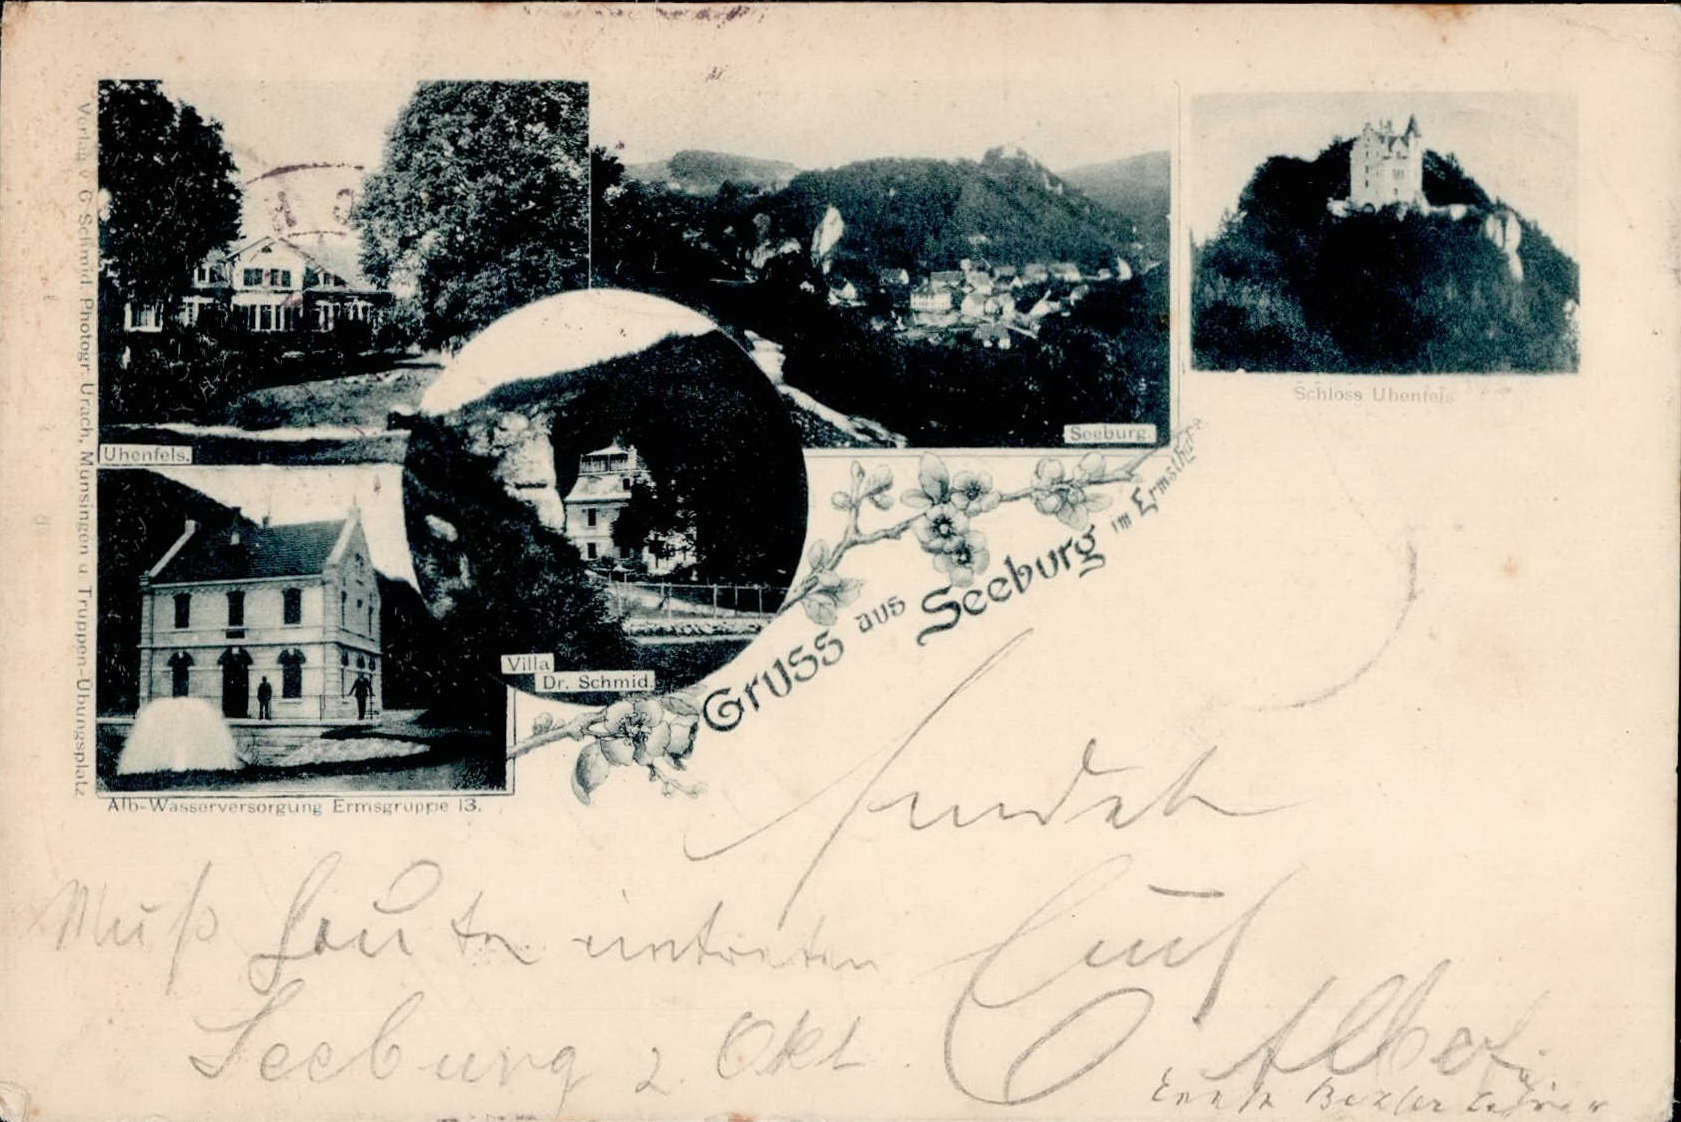 Verlag v. G. Schmid, Photogr. Urach, Münsingen u. Truppen-Übungsplatz
Uhenfels.
Seeburg.
Schloss Uhenfels
Villa
Dr. Schmid.
Alb-Wasserversorgung Ermsgruppe 13.
Gruss aus Seeburg im Ermsthale
sendet
Muß heute eintreten
Seeburg 2. Okt.
Albert